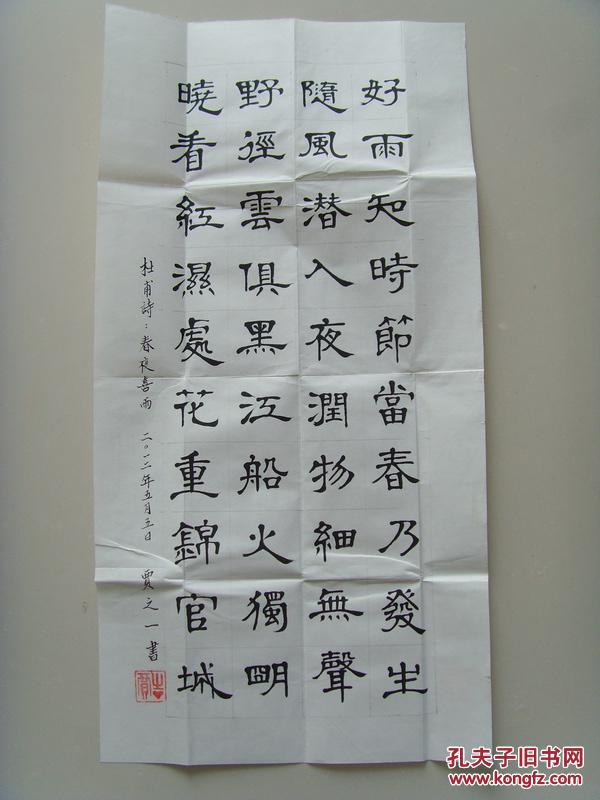 好雨知時節當春乃發生
隨風潜入夜潤物細無聲
野徑雲俱黑江船火獨明
曉看紅濕處花重錦官城
杜甫詩：春夜喜雨 二〇一二年五月三日 賈之一書
孔夫子旧书网
www.kongfz.com